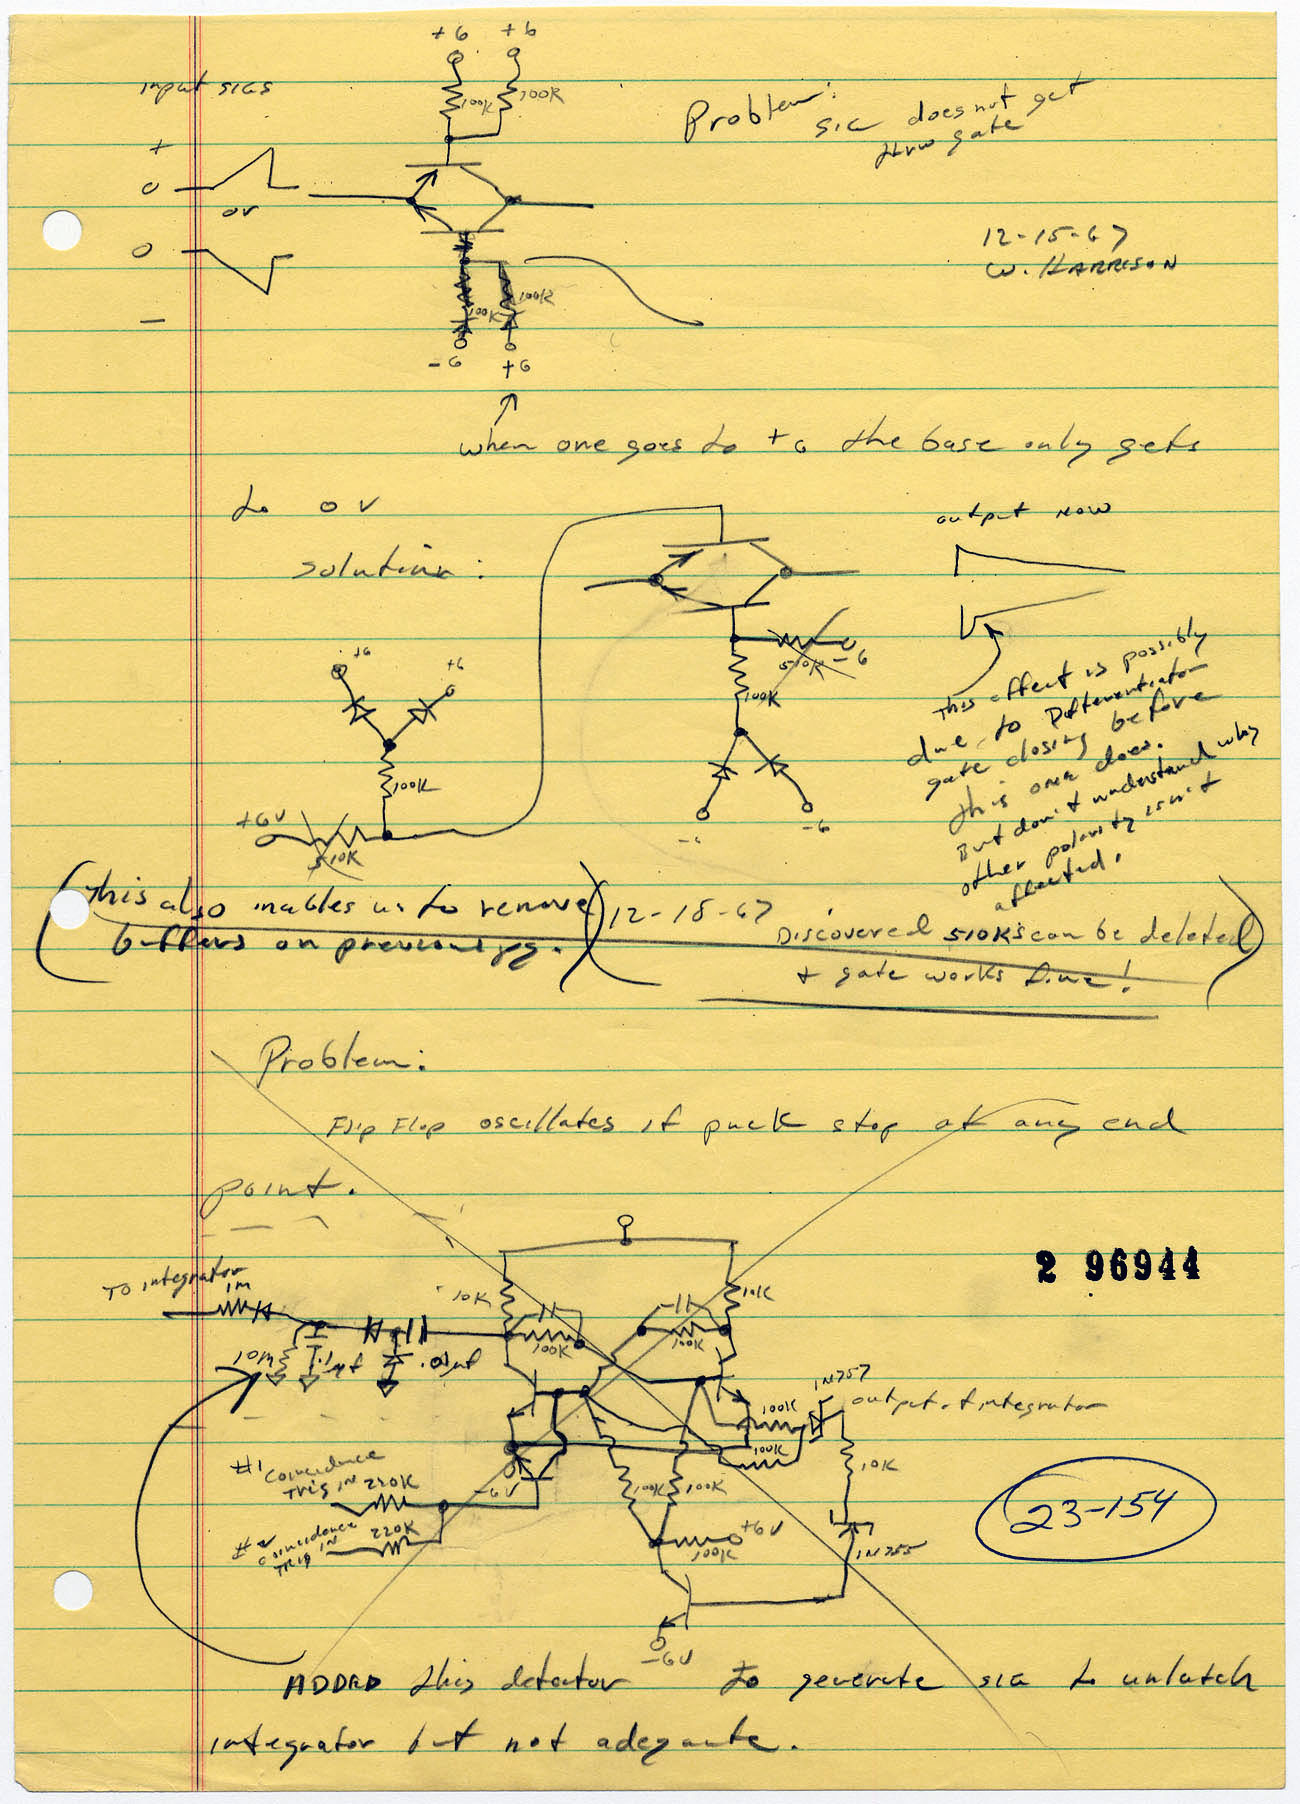 +6 +6
input SIGS
100K 100K
Problem:
SIG does not get
thru gate
+
0
or
0
—
12-15-67
W. HARRISON
100K
100K
-6 +6
when one goes to +6 the base only gets
to 0 V
output now
solution:
+6 +6
510K -6
100K
100K
+6V
510K
-6
This effect is possibly
due to Differentiator
gate closing before
this one does.
But don't understand why
other polarity isn't
affected.
(This also inables us to remove
buffers on previous pg.)
12-18-67
Discovered 510K's can be deleted
+ gate works fine!
Problem:
Flip Flop oscillates if puck stop at any end
point.
2 96944
TO integrator
1M
10K 10K
100K 100K
10M .1μf .01μf
1N757
output of integrator
100K
100K
10K
#1 coincidence
TRIG IN 220K
-6V
100K 100K
#2 coincidence
TRIG IN
220K
+6V
100K
1N755
23-154
-6V
ADDED this detector to generate SIG to unlatch
integrator but not adequate.